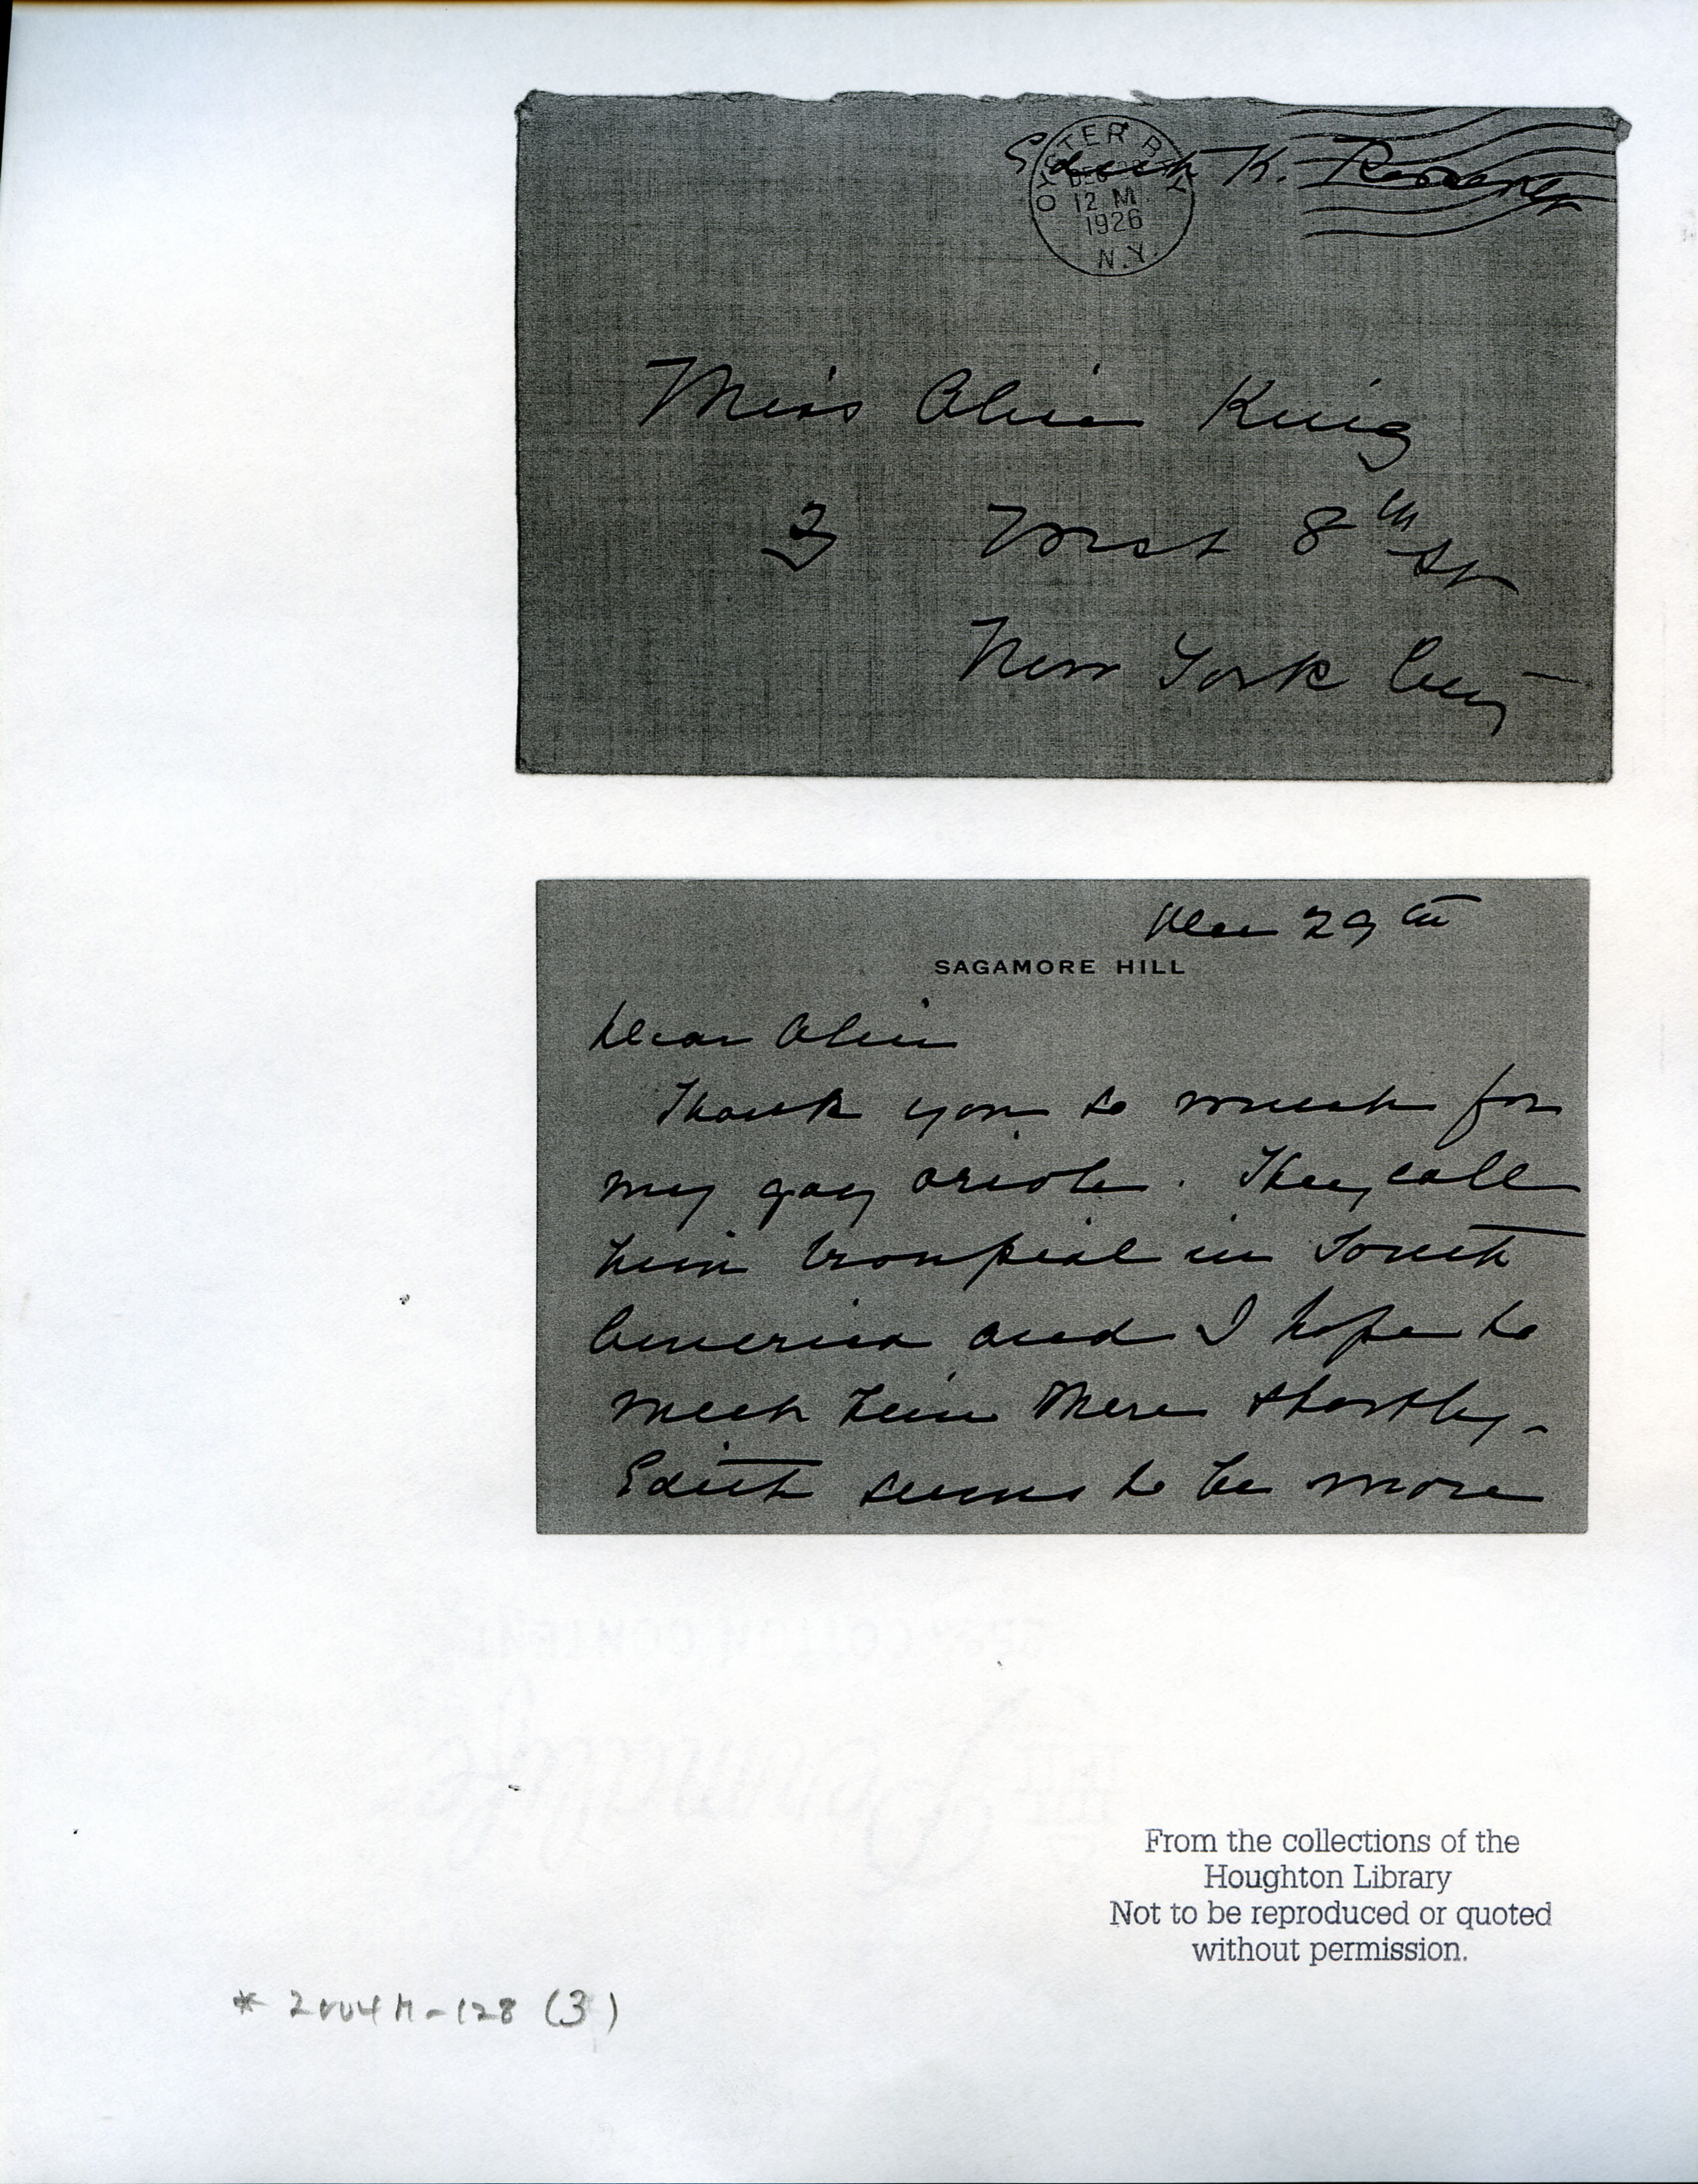 Edith K. Roosevelt
OYSTER BAY
DEC
12 M.
1926
N.Y.
Miss Alice King
3 West 8th St
New York City
Dec 29th
SAGAMORE HILL
Dear Alice
Thank you so much for
my gay oriole. They call
him troupial in South
America and I hope to
meet him there shortly -
Edith seems to be more
25% COTTON CONTENT
From the collections of the
Houghton Library
Not to be reproduced or quoted
without permission.
* 2004M-128 (3)